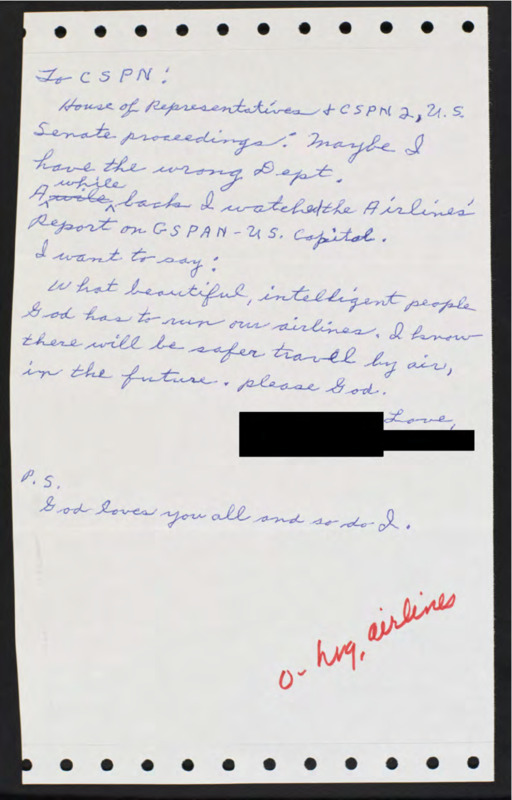 To CSPN:
House of Representatives & CSPN 2, U.S.
Senate proceedings: Maybe I
have the wrong Dept.
while
A wile back I watched the Airlines'
Report on CSPAN-U.S. Capitol.
I want to say:
What beautiful, intelligent people
God has to run our airlines. I know
there will be safer travel by air,
in the future. please God.
Love,
P.S.
God loves you all and so do I.
O- hvg, airlines